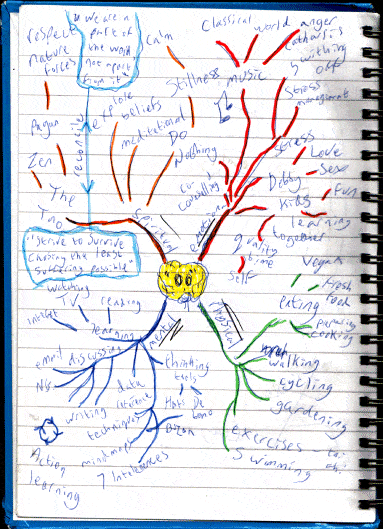 We are a
part of
the world
not apart
from it
respect
nature
forces
calm
Classical
world
anger
catharsis
switching
off
music
Stillness
stress
management
explore
beliefs
meditational
Do
Nothing
reconcile
Pagan
Zen
The
Tao
spiritual
emotional
co-
counselling
stress
Love
Sexe
Debby
Fun
Kids
learning
together
quality
time
Self
"Serve to Survive
causing the least
suffering possible"
watching
TV
reading
Internet
learning
email
discussing
mental
physical
Vegan
Fresh
food
eating
cooking
walking
cycling
gardening
exercises - tai
chi
Swimming
thinking
tools
data
writing
techniques
mindmaps
De
Bono
Buzan
7 Inteligences
Action
learning